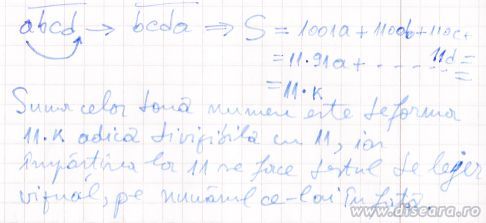 abcd → bcda ⇒ S = 1001a + 1100b + 110c +
= 11·91a + ..... 11d =
= 11·k
Suma celor două numere este de forma
11·k adică divizibilă cu 11, iar
împărțirea la 11 se face destul de lejer
vizual, pe numărul ce-l ai în față.
www.discara.ro